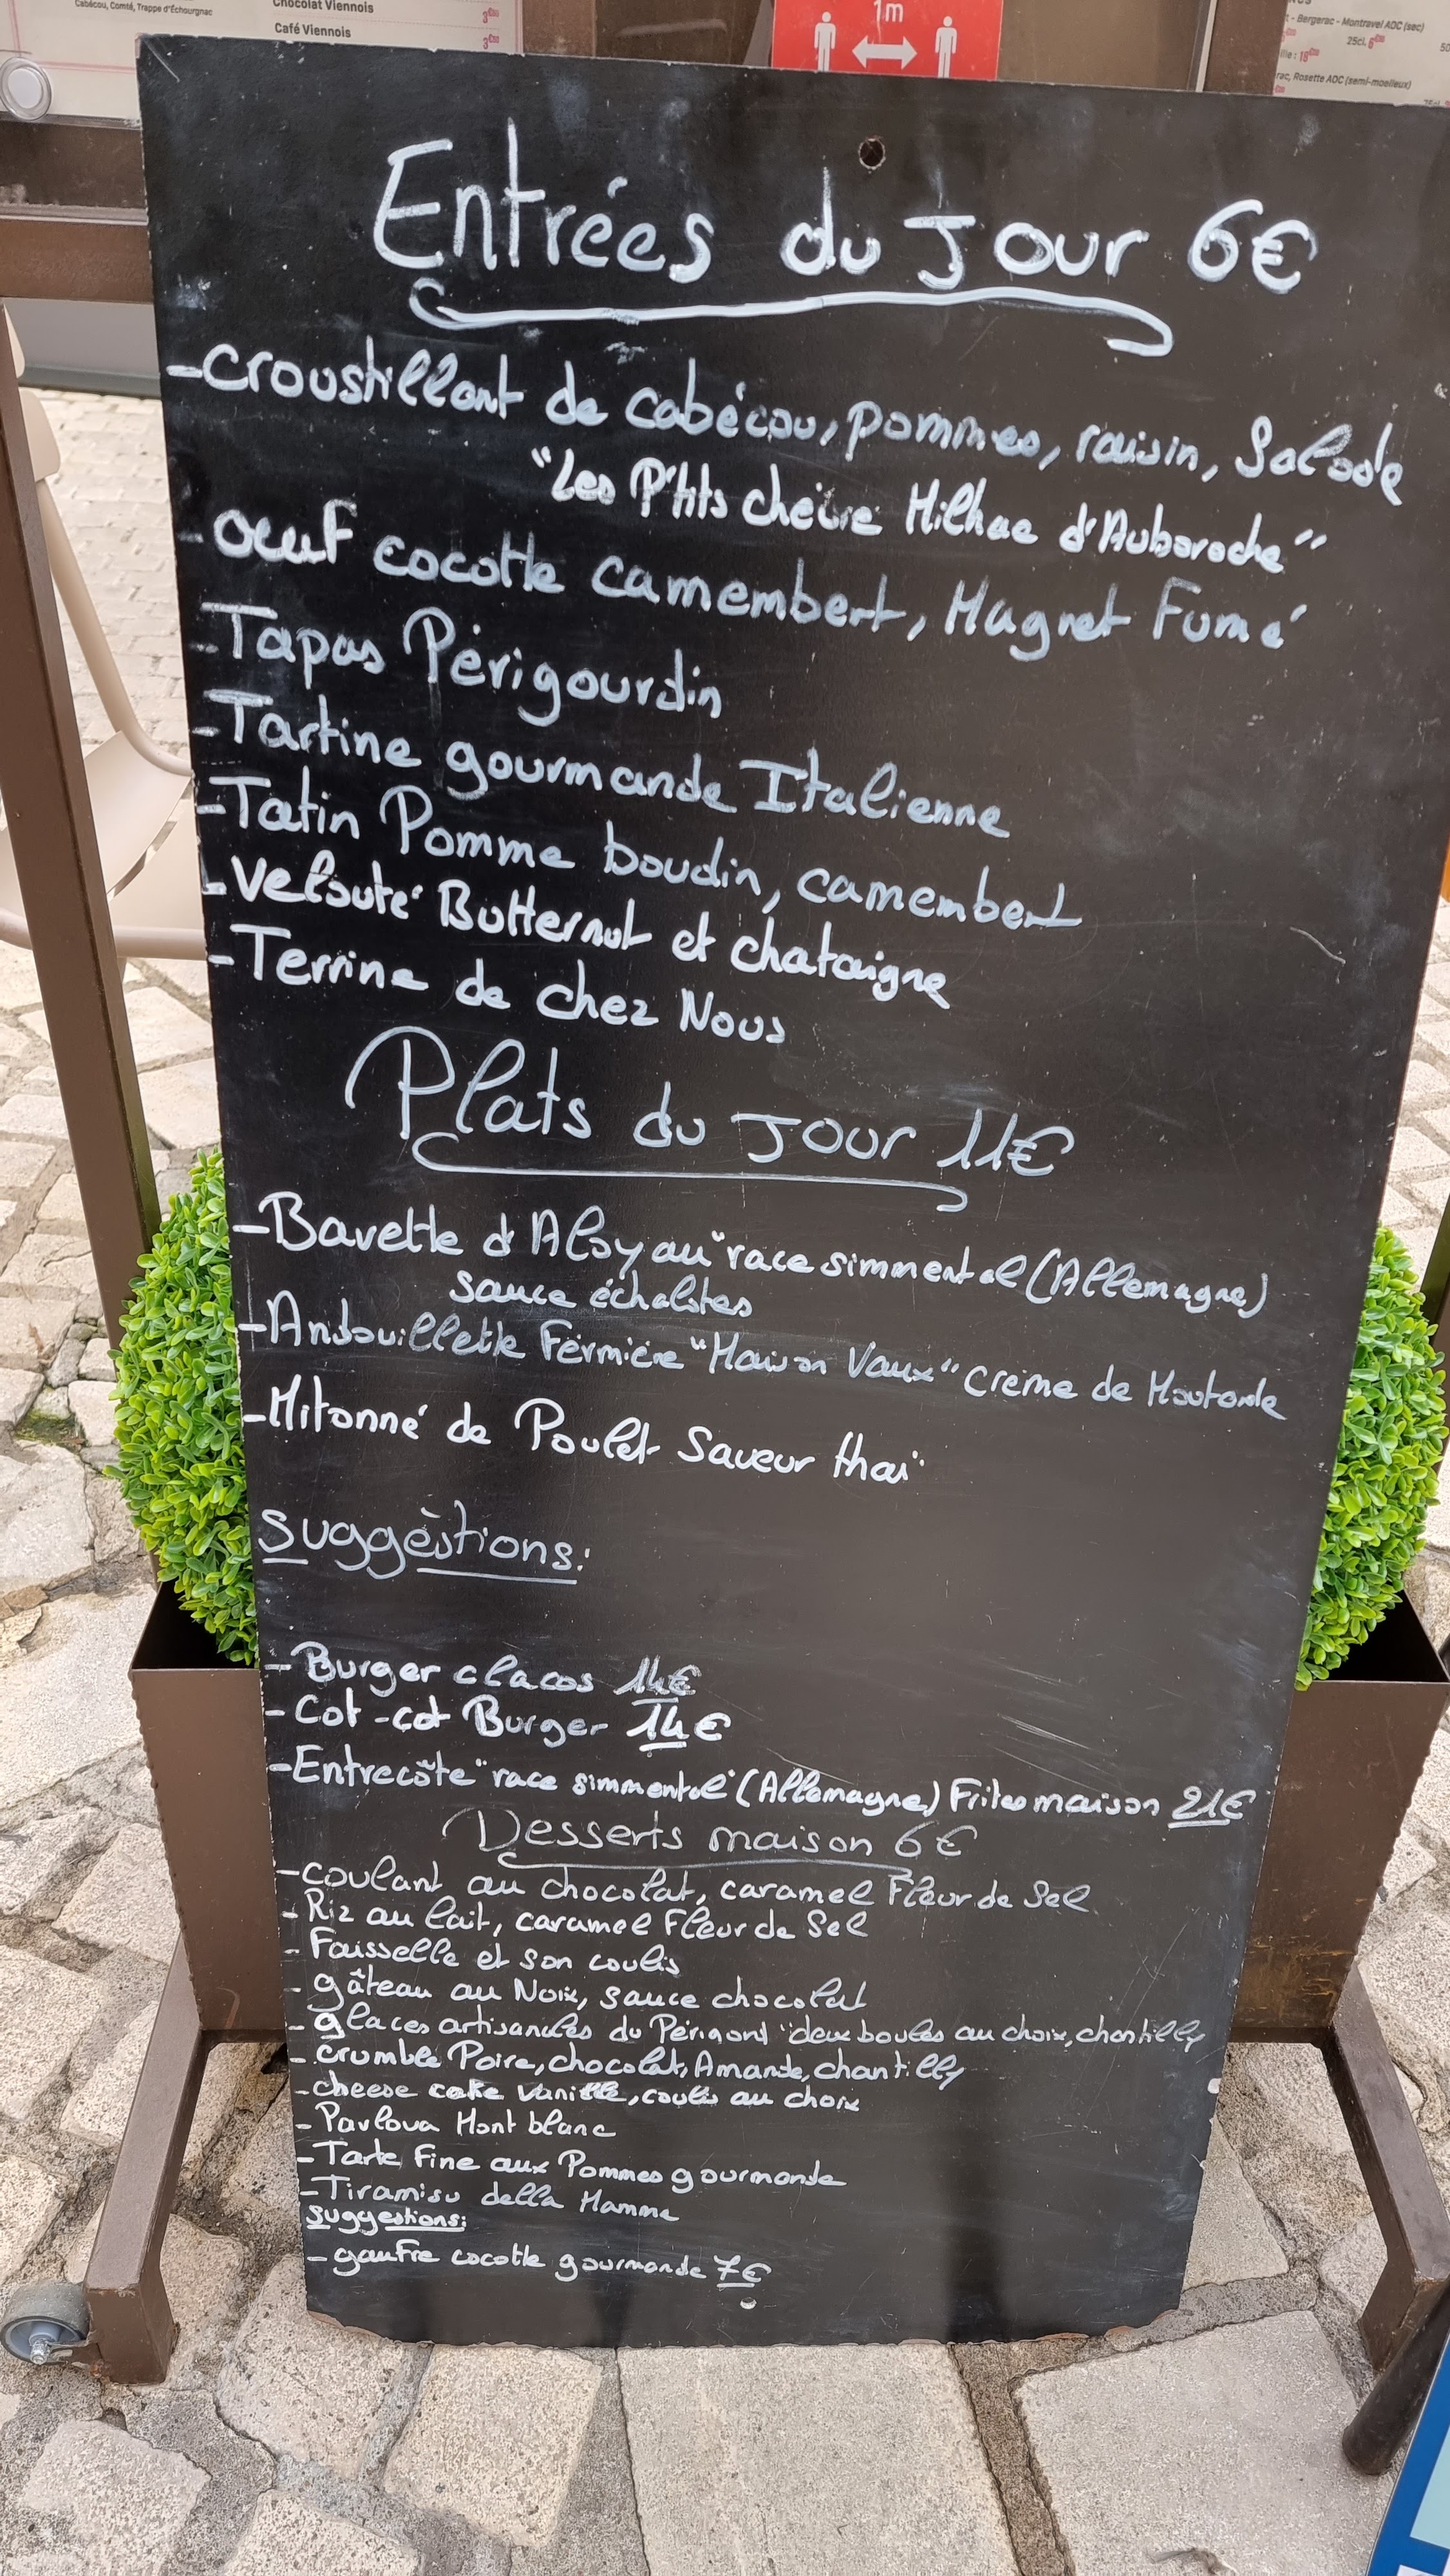 Cabécou, Comté, Trappe d'Échourgnac
Chocolat Viennois
Café Viennois
1m
- Bergerac - Montravel AOC (sec)
25cl.
Rosette AOC (semi-moelleux)
Entrées du Jour 6€
-croustillant de cabécou, pommes, raisin, Salade
"Les P'tits chèvre Milhac d'Auberoche"
- oeuf cocotte camembert, Magret Fumé
-Tapas Périgourdin
-Tartine gourmande Italienne
-Tatin Pomme boudin, camembert
-Velouté Butternut et chataigne
-Terrine de chez Nous
Plats du Jour 11€
-Bavette d'Aloyau "race simmental (Allemagne)
sauce échalotes
-Andouillette Fermière "Maison Vaux" crème de Moutarde
-Mitonné de Poulet Saveur thaï
Suggèstions:
-Burger clacos 14€
-Cot-cot Burger 14€
-Entrecôte "race simmental" (Allemagne) Frites maison 21€
Desserts maison 6€
-coulant au chocolat, caramel Fleur de Sel
-Riz au lait, caramel Fleur de Sel
-Faisselle et son coulis
-gâteau au Noix, sauce chocolat
-glaces artisanales du Périgord "deux boules au choix, chantilly
-crumble Poire, chocolat, Amande, chantilly
-cheese cake vanille, coulis au choix
-Pavlova Mont blanc
-Tarte Fine aux Pommes gourmande
-Tiramisu della Mamma
Suggestions:
-gaufre cocotte gourmande 7€